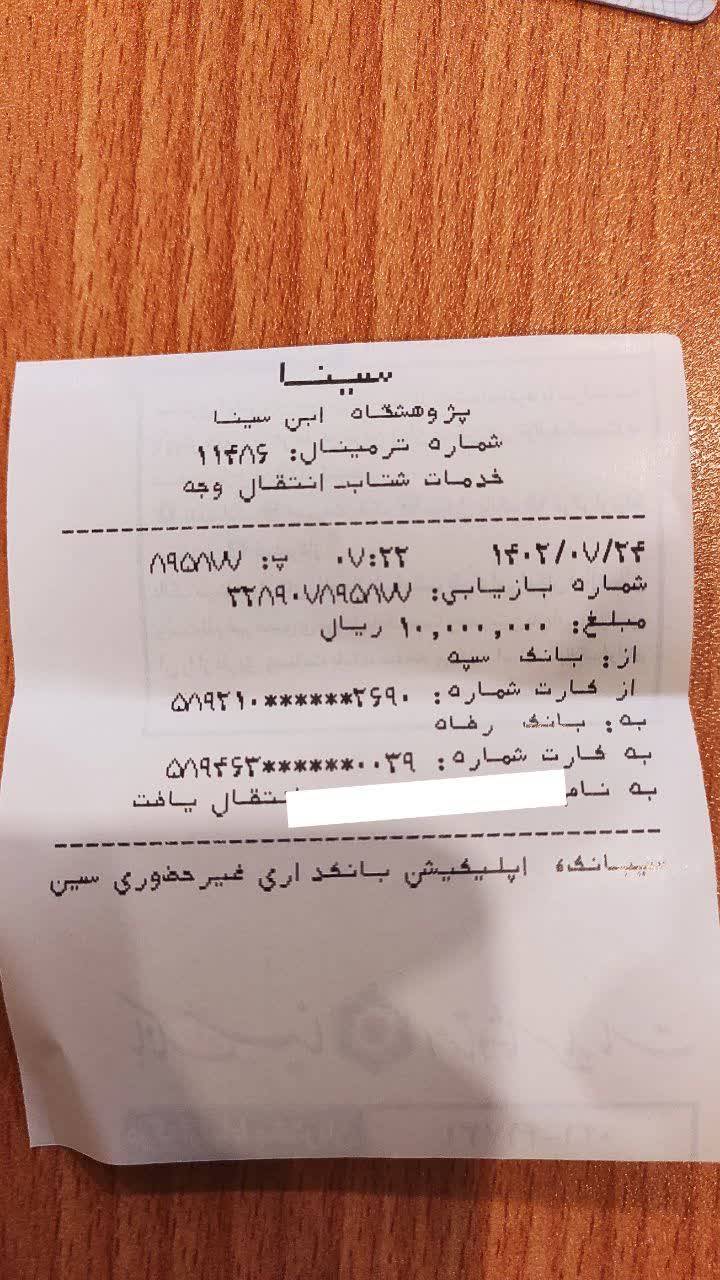 سينا
پژوهشگاه ابن سينا
شماره ترمينال: ۱۱۴۸۶
خدمات شتاب- انتقال وجه
۱۴۰۲/۰۷/۲۴ ۰۷:۲۲ پ: ۸۹۵۸۷۷
شماره بازيابي: ۲۲۸۹۰۷۸۹۵۸۷۷
مبلغ: ۱۰,۰۰۰,۰۰۰ ريال
از: بانک سپه
از کارت شماره: ۵۸۹۲۱۰******۲۶۹۰
به: بانک رفاه
به کارت شماره: ۵۸۹۴۶۳******۰۰۳۹
به نام انتقال يافت
اپليکيشن بانکداري غيرحضوري سين